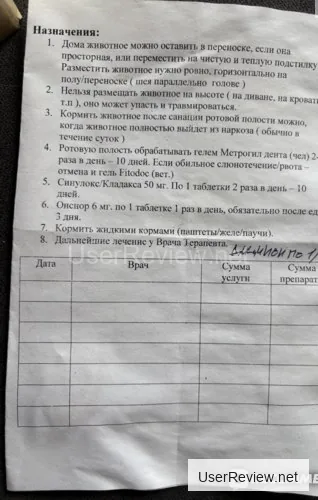 Назначения:
1. Дома животное можно оставить в переноске, если она
просторная, или переместить на чистую и теплую подстилку
Разместить животное нужно ровно, горизонтально на
полу/переноске ( шея параллельно голове )
2. Нельзя размещать животное на высоте ( на диване, на кроват
т.п ), оно может упасть и травмироваться.
3. Кормить животное после санации ротовой полости можно,
когда животное полностью выйдет из наркоза ( обычно в
течение суток )
4. Ротовую полость обрабатывать гелем Метрогил дента (чел) 2-
раза в день – 10 дней. Если обильное слюнотечение/рвота –
отмена и гель Fitodoc (вет.)
5. Синулокс/Кладакса 50 мг. По 1 таблетки 2 раза в день – 10
дней.
6. Онсиор 6 мг. по 1 таблетке 1 раз в день, обязательно после ед
3 дня.
7. Кормить жидкими кормами (паштеты/желе/паучи).
8. Дальнейшие лечение у Врача Терапевта.
по 1/
Дата Врач Сумма услуги Сумма препарат
UserReview.net
UserReview.net